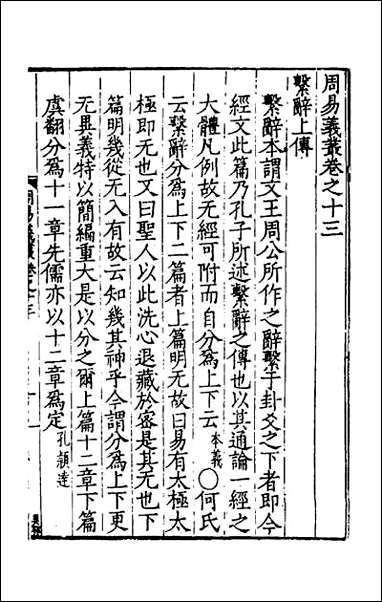 周易義叢卷之十三
繫辭上傳
繫辭本謂文王周公所作之辭繫于卦爻之下者即今
經文此篇乃孔子所述繫辭之傳也以其通論一經之
大體凡例故无經可附而自分爲上下云本義○何氏
云繫辭分爲上下二篇者上篇明无故曰易有太極太
極即无也又曰聖人以此洗心退藏於密是其无也下
篇明幾從无入有故云知幾其神乎今謂分爲上下更
无異義特以簡編重大是以分之爾上篇十二章下篇
虞翻分爲十一章先儒亦以十二章爲定孔穎達